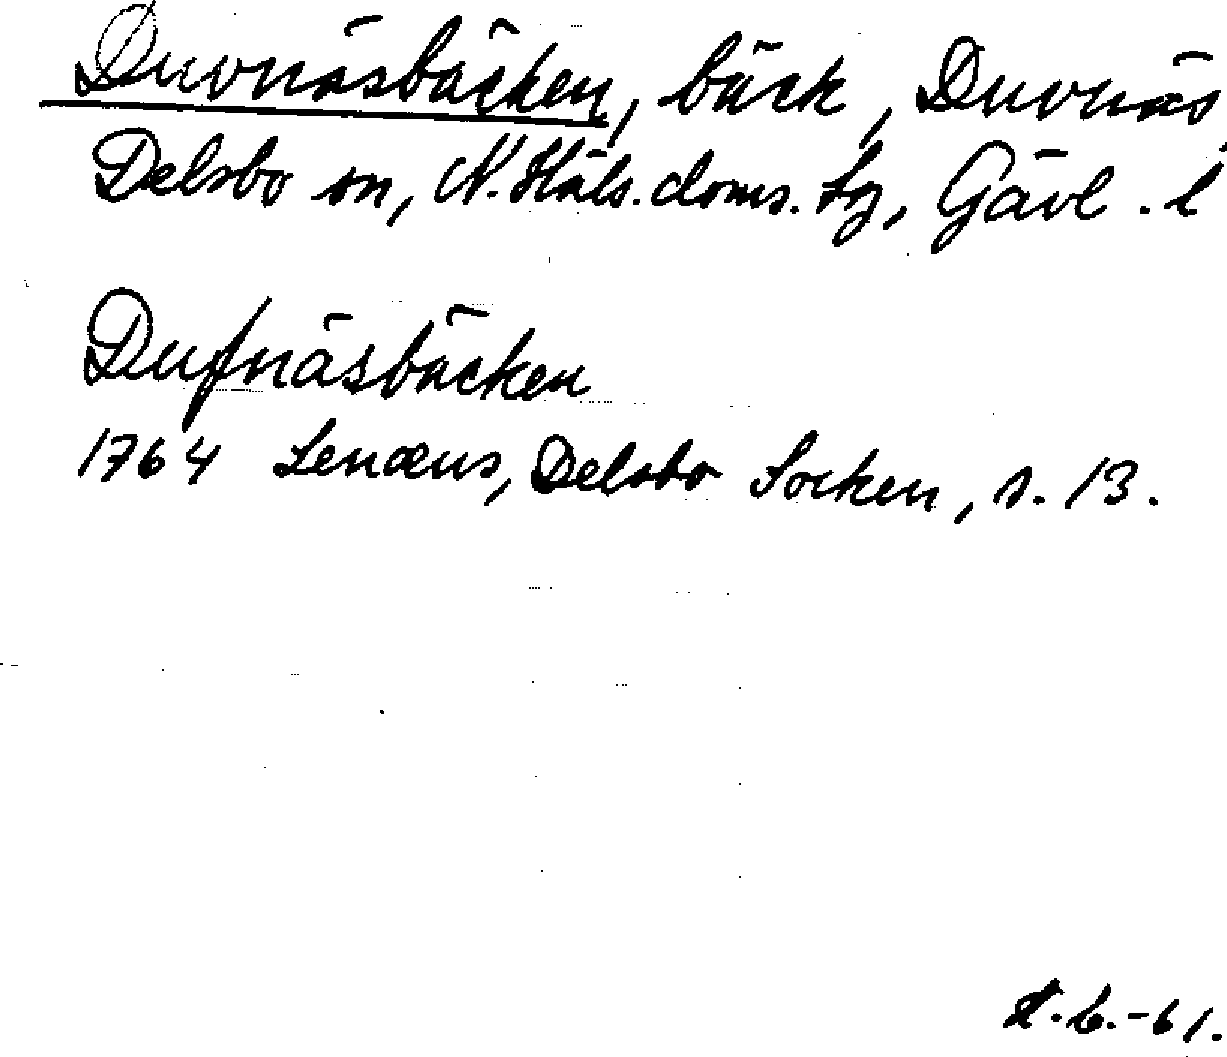 Duvnäsbäcken, bäck, Duvnäs,
Delsbo sn, N. Häls. doms. tg, Gävl. l
Dufnäsbäcken
1764 Lenæus, Delsbo Socken, s. 13.
-61.